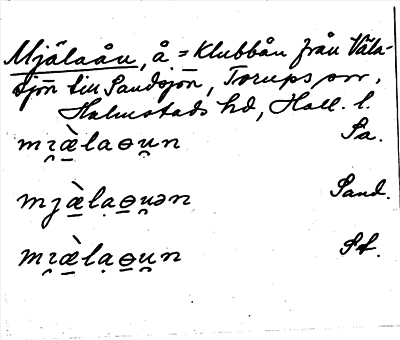 Mjälaån, å = Klubbån från Väla-
sjön till Sandsjön, Torups sn,
Halmstads hd, Hall. l.
mı̯æ̀laɵu̯n Sa.
mjæ̀lạɵu̯ən Sand.
mı̯æ̀lạɵu̯n St.